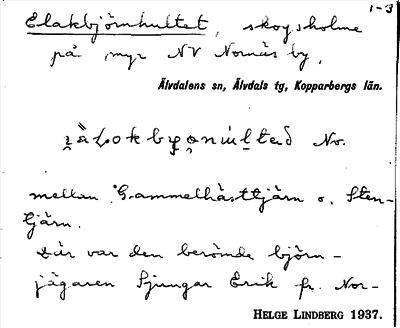 1-3
Elakbjörnhultet, skogsholme
på myr NV Nornäs by,
Älvdalens sn, Älvdals tg, Kopparbergs län.
No.
mellan Gammelhåsttjärn o. Sten-
tjärn.
Där var den berömde björn-
jägaren Ljungar Erik fr. Nor-
HELGE LINDBERG 1937.